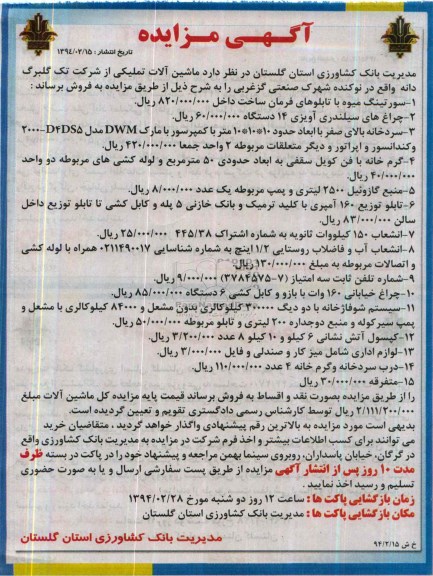 آگهی مزایده
تاریخ انتشار : ۱۳۹۴/۰۲/۱۵
مدیریت بانک کشاورزی استان گلستان در نظر دارد ماشین آلات تملیکی از شرکت تک گلبرگ
دانه واقع در نوکنده شهرک صنعتی گزغربی را به شرح ذیل از طریق مزایده به فروش برساند :
۱-سورتینگ میوه با تابلوهای فرمان ساخت داخل ۸۲۰/۰۰۰/۰۰۰ ریال.
۲-چراغ های سیلندری آویزی ۱۴ دستگاه ۶۰/۰۰۰/۰۰۰ ریال.
۳-سردخانه بالای صفر با ابعاد حدود ۱۰*۱۰*۱۰ متر با کمپرسور با مارک DWM مدل D۴DS۵-۲۰۰۰
وکندانسور و اپراتور و دیگر متعلقات مربوطه ۲ واحد جمعا ۴۲۰/۰۰۰/۰۰۰ ریال.
۴-گرم خانه با فن کویل سقفی به ابعاد حدودی ۵۰ مترمربع و لوله کشی های مربوطه دو واحد
۴۰/۰۰۰/۰۰۰ ریال.
۵-منبع گازوئیل ۲۵۰۰ لیتری و پمپ مربوطه یک عدد ۸/۰۰۰/۰۰۰ ریال.
۶-تابلو توزیع ۱۶۰ آمپری با کلید ترمیک و بانک خازنی ۵ پله و کابل کشی تا تابلو توزیع داخل
سالن ۸۳/۰۰۰/۰۰۰ ریال.
۷-انشعاب ۱۵۰ کیلووات ثانویه به شماره اشتراک ۴۴۵/۳۸ ۲۵/۰۰۰/۰۰۰ ریال.
۸-انشعاب آب و فاضلاب روستایی ۱/۲ اینچ به شماره شناسایی ۰۲۱۱۴۹۰۰۱۷ همراه با لوله کشی
و اتصالات مربوطه به مبلغ ۱۳۰/۰۰۰/۰۰۰ ریال.
۹-شماره تلفن ثابت سه امتیاز (۷-۳۷۸۴۵۷۵) ۹/۰۰۰/۰۰۰ ریال.
۱۰-چراغ خیابانی ۱۶۰ وات با بازو و کابل کشی ۶ دستگاه ۸۵/۰۰۰/۰۰۰ ریال.
۱۱-سیستم شوفاژخانه با دو دیگ ۳۰۰۰۰۰ کیلوکالری بدون مشعل و ۸۴۰۰۰ کیلوکالری با مشعل و
پمپ سیرکوله و منبع دوجداره ۲۰۰ لیتری و تابلو مربوطه ۵۰/۰۰۰/۰۰۰ ریال.
۱۲-کپسول آتش نشانی ۶ کیلو و ۱۰ کیلو ۸ عدد ۳/۲۰۰/۰۰۰ ریال.
۱۳-لوازم اداری شامل میز کار و صندلی و فایل ۳/۰۰۰/۰۰۰ ریال.
۱۴-درب سردخانه وگرم خانه ۴ عدد ۱۱۰/۰۰۰/۰۰۰ ریال.
۱۵-متفرقه ۳۰/۰۰۰/۰۰۰ ریال.
را از طریق مزایده بصورت نقد و اقساط به فروش برساند قیمت پایه مزایده کل ماشین آلات مبلغ
۲/۱۱۱/۲۰۰/۰۰۰ ریال توسط کارشناس رسمی دادگستری تقویم و تعیین گردیده است.
بدیهی است مورد مزایده به بالاترین رقم پیشنهادی واگذار خواهد گردید ، متقاضیان خرید
می توانند برای کسب اطلاعات بیشتر و اخذ فرم شرکت در مزایده به مدیریت بانک کشاورزی واقع
در گرگان، خیابان پاسداران، روبروی سینما بهمن مراجعه و پیشنهاد خود را در پاکت در بسته ظرف
مدت ۱۰ روز پس از انتشار آگهی مزایده از طریق پست سفارشی ارسال و یا به صورت حضوری
تسلیم و رسید اخذ نمایید .
زمان بازگشایی پاکت ها : ساعت ۱۲ روز دو شنبه مورخ ۱۳۹۴/۰۲/۲۸
مکان بازگشایی پاکت ها : مدیریت بانک کشاورزی استان گلستان
مدیریت بانک کشاورزی استان گلستان
خ ش ۹۴/۲/۱۵